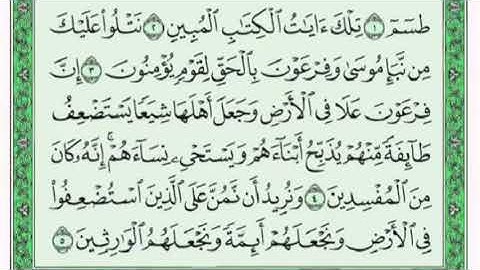 طسٓمٓ ١ تِلۡكَ ءَايَٰتُ ٱلۡكِتَٰبِ ٱلۡمُبِينِ ٢ نَتۡلُواْ عَلَيۡكَ
مِن نَّبَإِ مُوسَىٰ وَفِرۡعَوۡنَ بِٱلۡحَقِّ لِقَوۡمٖ يُؤۡمِنُونَ ٣ إِنَّ
فِرۡعَوۡنَ عَلَا فِي ٱلۡأَرۡضِ وَجَعَلَ أَهۡلَهَا شِيَعٗا يَسۡتَضۡعِفُ
طَآئِفَةٗ مِّنۡهُمۡ يُذَبِّحُ أَبۡنَآءَهُمۡ وَيَسۡتَحۡيِۦ نِسَآءَهُمۡۚ إِنَّهُۥ كَانَ
مِنَ ٱلۡمُفۡسِدِينَ ٤ وَنُرِيدُ أَن نَّمُنَّ عَلَى ٱلَّذِينَ ٱسۡتُضۡعِفُواْ
فِي ٱلۡأَرۡضِ وَنَجۡعَلَهُمۡ أَئِمَّةٗ وَنَجۡعَلَهُمُ ٱلۡوَٰرِثِينَ ٥